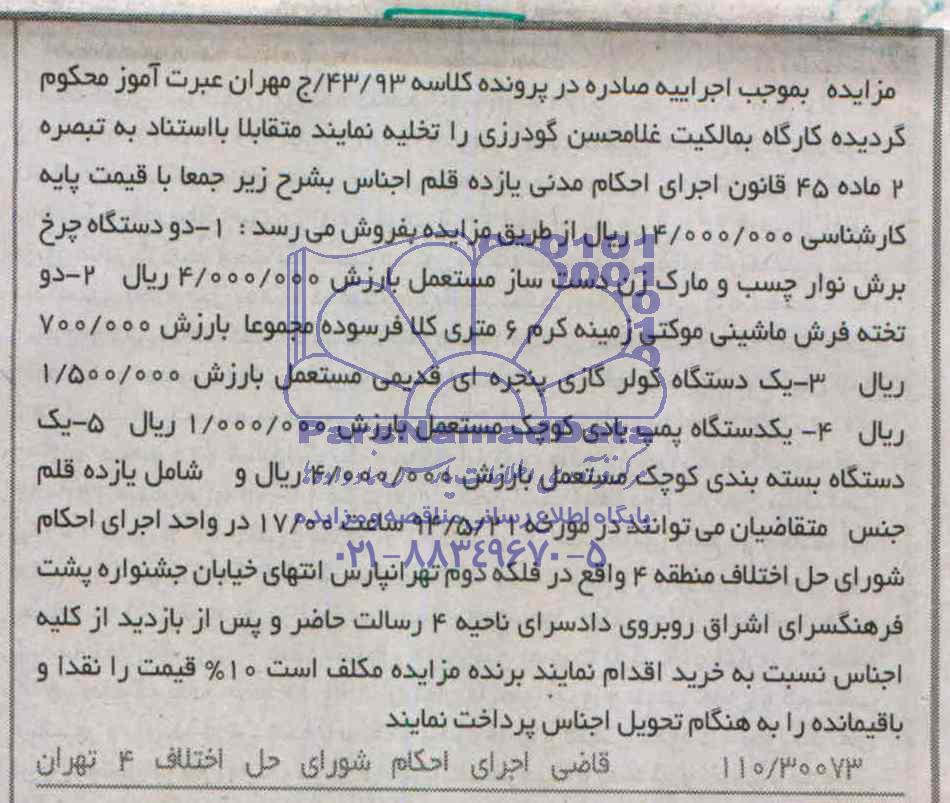 مزایده بموجب اجراییه صادره در پرونده کلاسه ۴۳/۹۳/ج مهران عبرت آموز محکوم
گردیده کارگاه بمالکیت غلامحسن گودرزی را تخلیه نمایند متقابلا بااستناد به تبصره
۲ ماده ۴۵ قانون اجرای احکام مدنی یازده قلم اجناس بشرح زیر جمعا با قیمت پایه
کارشناسی ۱۴/۰۰۰/۰۰۰ ریال از طریق مزایده بفروش می رسد : ۱-دو دستگاه چرخ
برش نوار چسب و مارک زن دست ساز مستعمل بارزش ۴/۰۰۰/۰۰۰ ریال ۲-دو
تخته فرش ماشینی موکتی زمینه کرم ۶ متری کلا فرسوده مجموعا بارزش ۷۰۰/۰۰۰
ریال ۳-یک دستگاه کولر گازی پنجره ای قدیمی مستعمل بارزش ۱/۵۰۰/۰۰۰
ریال ۴- یکدستگاه پمپ بادی کوچک مستعمل بارزش ۱/۰۰۰/۰۰۰ ریال ۵-یک
Pars Namad Data
دستگاه بسته بندی کوچک مستعمل بارزش ۴/۰۰۰/۰۰۰ ریال و شامل یازده قلم
جنس متقاضیان می توانند در مورخه ساعت ۱۷/۰۰ در واحد اجرای احکام
پایگاه اطلاع رسانی مناقصه و مزایده
۰۲۱-۸۸۳۴۹۶۷۰-۵
شورای حل اختلاف منطقه ۴ واقع در فلکه دوم تهرانپارس انتهای خیابان جشنواره پشت
فرهنگسرای اشراق روبروی دادسرای ناحیه ۴ رسالت حاضر و پس از بازدید از کلیه
اجناس نسبت به خرید اقدام نمایند برنده مزایده مکلف است ۱۰% قیمت را نقدا و
باقیمانده را به هنگام تحویل اجناس پرداخت نمایند
۱۱۰/۳۰۰۷۳ قاضی اجرای احکام شورای حل اختلاف ۴ تهران